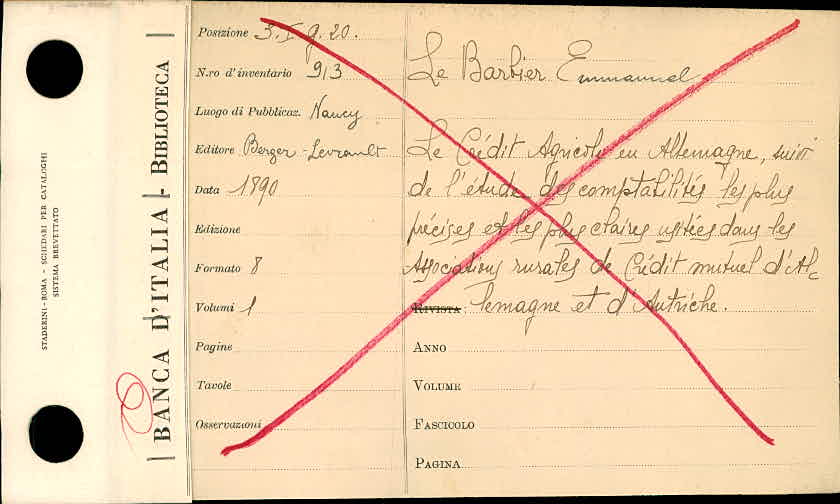 STADERINI - ROMA - SCHEDARI PER CATALOGHI
SISTEMA BREVETTATO
BANCA D'ITALIA - BIBLIOTECA
Posizione 3. I. g. 20.
N.ro d'inventario 913
Luogo di Pubblicaz. Nancy
Editore Berger-Levrault
Data 1890
Edizione
Formato 8
Volumi 1
Pagine
Tavole
Osservazioni
Le Barbier Emmanuel
Le Crédit Agricole en Allemagne, suivi
de l'étude des comptabilités les plus
précises et les plus claires usitées dans les
Associations rurales de Crédit mutuel d'Al-
RIVISTA lemagne et d'Autriche.
ANNO
VOLUME
FASCICOLO
PAGINA